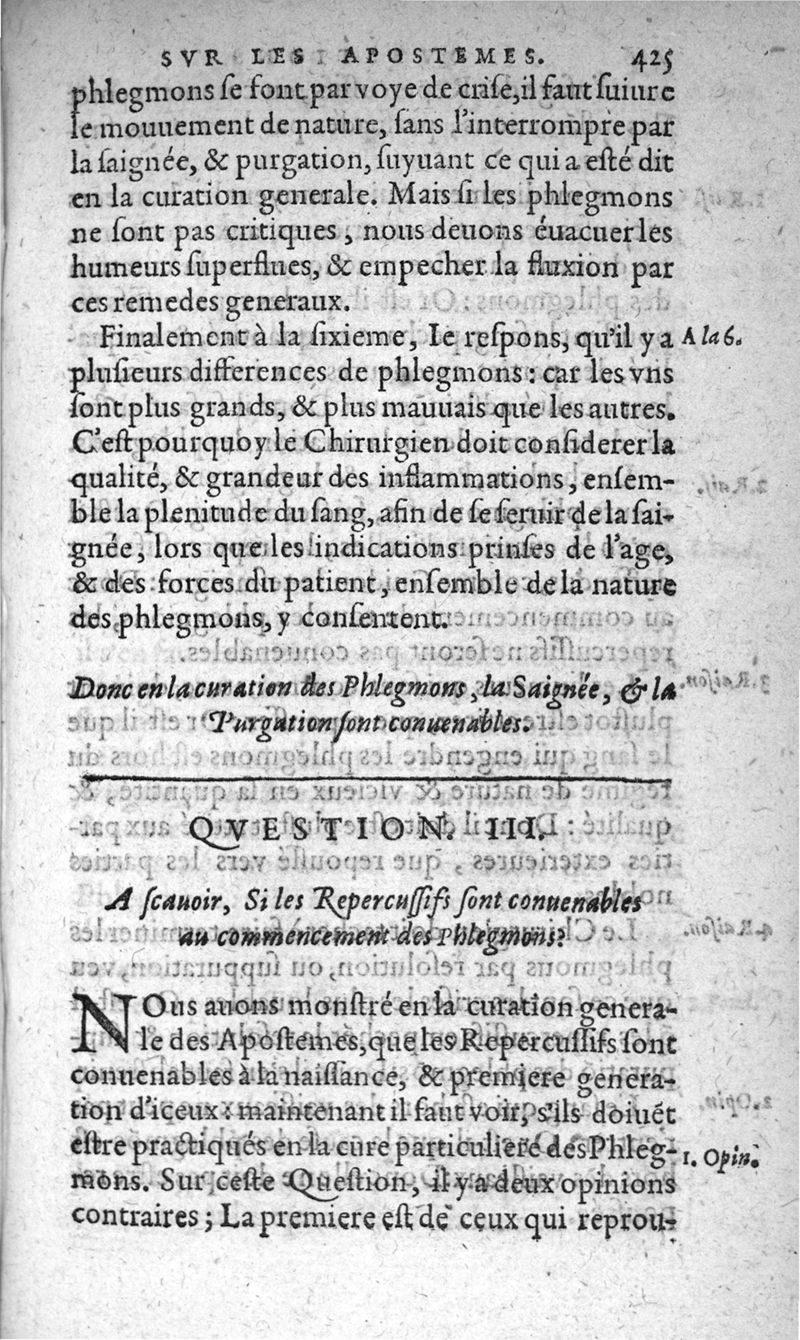 SVR LES APOSTEMES. 425
phlegmons ſe font par voye de criſe, il faut ſuiure
le mouuement de nature, ſans l'interrompre par
la ſaignée, & purgation, ſuyuant ce qui a eſté dit
en la curation generale. Mais ſi les phlegmons
ne ſont pas critiques, nous deuons éuacuer les
humeurs ſuperflues, & empecher la fluxion par
ces remedes generaux.
Finalement à la ſixieme, Ie reſpons, qu'il y a A la 6.
pluſieurs differences de phlegmons : car les vns
ſont plus grands, & plus mauuais que les autres.
C'eſt pourquoy le Chirurgien doit conſiderer la
qualité, & grandeur des inflammations, enſem-
ble la plenitude du ſang, afin de ſe ſeruir de la ſai-
gnée, lors que les indications prinſes de l'age,
& des forces du patient, enſemble de la nature
des phlegmons, y conſentent.
Donc en la curation des Phlegmons, la Saignée, & la
Purgation ſont conuenables.
QVESTION. III.
A ſcauoir, Si les Repercuſſifs ſont conuenables
au commencement des Phlegmons?
NOus auons monſtré en la curation genera-
le des Apoſtemes, que les Repercuſſifs ſont
conuenables à la naiſſance, & premiere genera-
tion d'iceux : maintenant il faut voir, s'ils doiuẽt
eſtre practiqués en la cure particuliere des Phleg- 1. Opin.
mons. Sur ceſte Queſtion, il y a deux opinions
contraires ; La premiere eſt de ceux qui reprou-